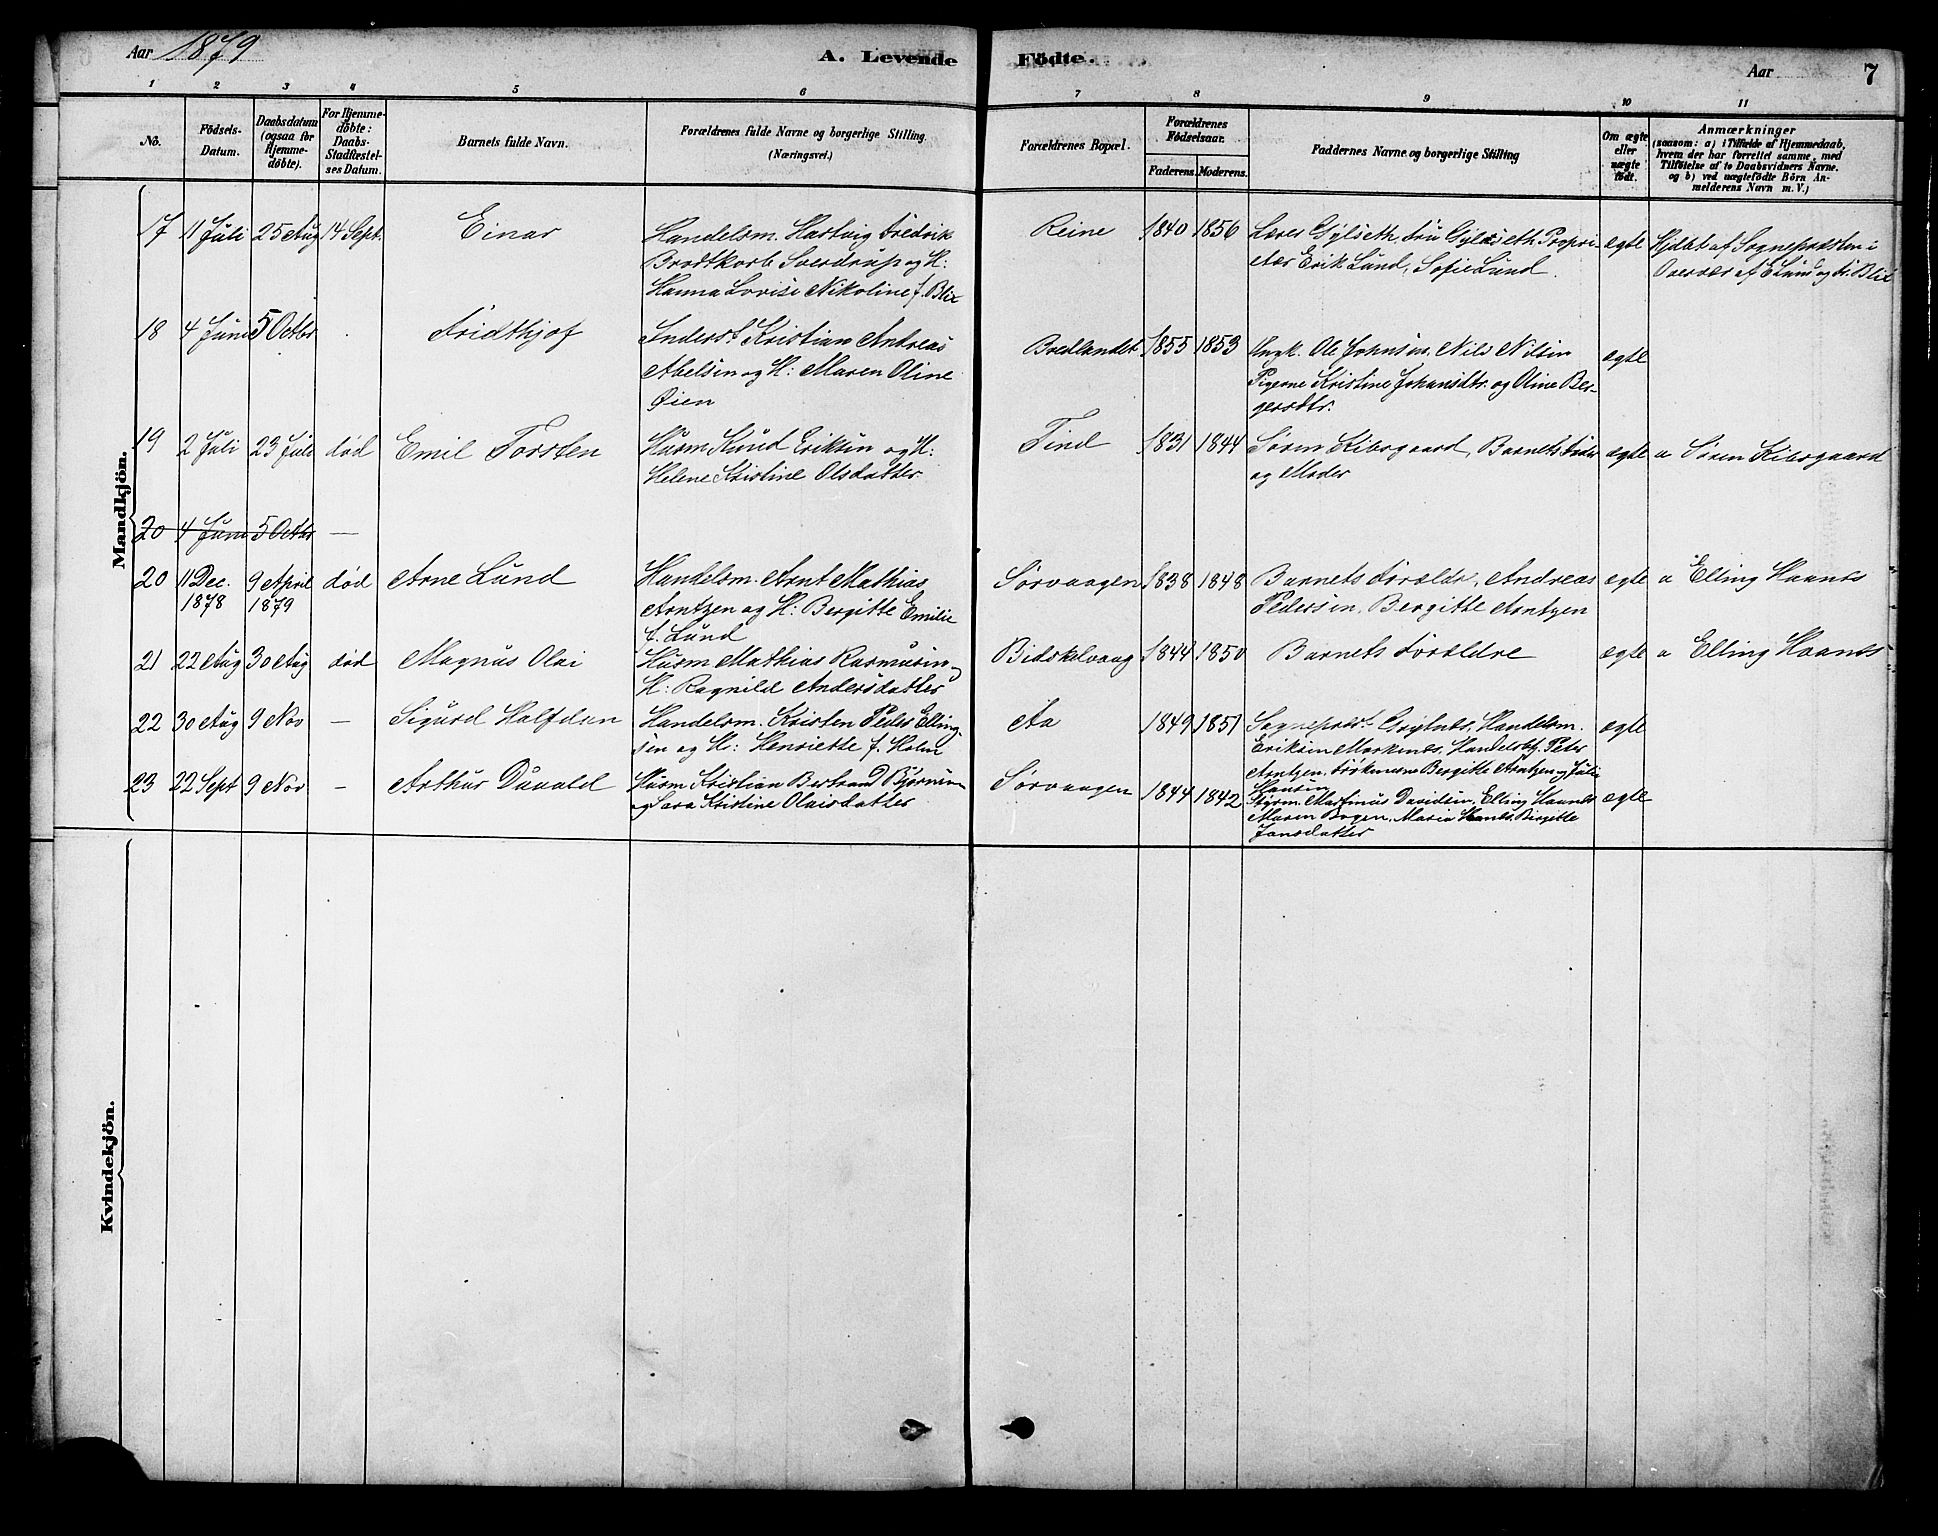 Aar 1879
A. Levende Födte.
Aar
7
1 2 3 4 5 6 7 8 9 10 11
No.
Födsels-
Datum.
Daabsdatum
(ogsaa for
Hjemme-
döbte).
For Hjemme-
döbte:
Daabs-
Stadfæstel-
ses Datum.
Barnets fulde Navn.
Forældrenes fulde Navne og borgerlige Stilling.
(Næringsvei.)
Forældrenes Bopæl.
Forældrenes
Födselsaar.
Faderens. Moderens.
Faddernes Navne og borgerlige Stilling
Om ægte
eller
uægte
födt.
Anmærkninger
(saasom: a) i Tilfælde af Hjemmedaab,
hvem der har forrettet samme, med
Tilföielse af to Daabsvidners Navne.
og b) ved uægtefödte Börn An-
melderens Navn m. V.)
Mandkjön.
17 11 Juli 25 Aug 14 Sept. Einar
Handelsm. Hartvig Fredrik
Brodtkorb Sverdrup og H:
Hanna Lovise Nikoline f. Blix
Reine 1840 1856
Lærer Gylseth, Fru Gylseth Propri-
etær Erik Lund, Sofie Lund.
ægte
Hjdbt af Sognepræsten i
Overvær af E Lund og Fr. Blix
18 4 Juni 5 Octbr Fridthjof
Inderst Kristian Andreas
Abelsen og H: Maren Oline
Øien
Bredlandet 1855 1853
Ungk. Ole Johnsen, Nils Nilsen
Pigerne Kristine Johansdtr. og Oline Ber-
gersdtr.
ægte
19 2 Juli 23 Juli död Emil Torsten
Husm Knud Eriksen og H:
Helene Kristine Olsdatter.
Tind 1831 1844
Søren Kibsgaard, Barnets Fader
og Moder
ægte
a Søren Kibsgaard
20 4 Juni 5 Octbr —
20 11 Dec.
1878
9 April
1879
död Arne Lund
Handelsm. Arnt Mathias
Arntzen og H: Bergitte Emilie
f. Lund
Sørvaagen 1838 1848
Barnets Forældr, Andreas
Pedersen, Bergitte Arntzen
ægte
a Elling Haants
21 22 Aug 30 Aug död Magnus Olai
Husm Mathias Rasmussen og
H: Ragnild Andersdatter
1844 1850
Barnets Forældre
ægte
a Elling Haants
22 30 Aug 9 Nov — Sigurd Halfdan
Handelsm. Kristen Peder Elling-
sen og H: Henriette f. Holm
Aa 1849 1851
Sognepræst Handelsm.
Eriksen Handelsbf. Peter
Arntzen, Frøknerne Bergitte Arntzen og Julie
Hansen
ægte
23 22 Sept 9 Nov — Arthur Duvald
Husm Kristian Bertrand Bjørnsen
og Sara Kristine Olaisdatter
Sørvaagen 1844 1842
Styrm. Martinus Davidsen, Elling Haants
Maren Bogen, Maria Haants, Birgitte
Jansdatter
ægte
Kvindekjön.